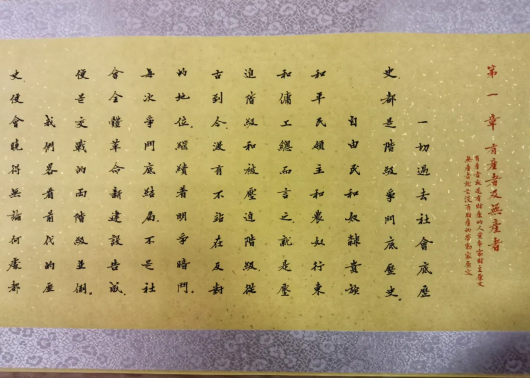 第一章 有產者及無產者
有產者就是有財產的人資本家財主原文
無產者就是沒有財產的勞動家原文
一切過去社會底歷
史都是階級爭鬥底歷史。
自由民和奴隸貴族
和平民領主和農奴行東
和傭工總而言之就是壓
迫階級和被壓迫階級從
古到今沒有不站在反對
的地位,繼續着明爭暗鬥。
每次爭鬥底結局,不是社
會全體革命新建設告成,
便是交戰的兩階級並倒。
我們略看前代的歷
史便會曉得無論何處都